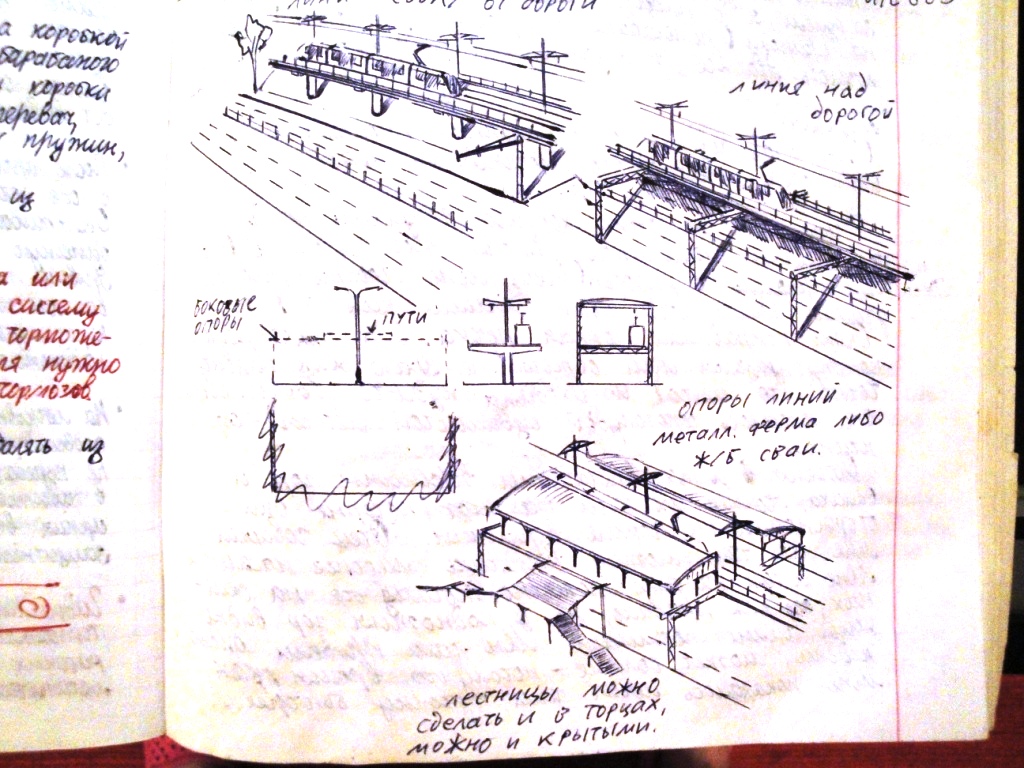 линия сбоку от дороги
линия над
дорогой
боковые
опоры
пути
опоры линий
металл. ферма либо
ж/б. сваи.
лестницы можно
сделать и в торцах,
можно и крытыми.
а коробкой
барабаного
коробки
перевач,
пружин,
из
а или
систему
торможе-
ля нужно
тормозов.
далять из